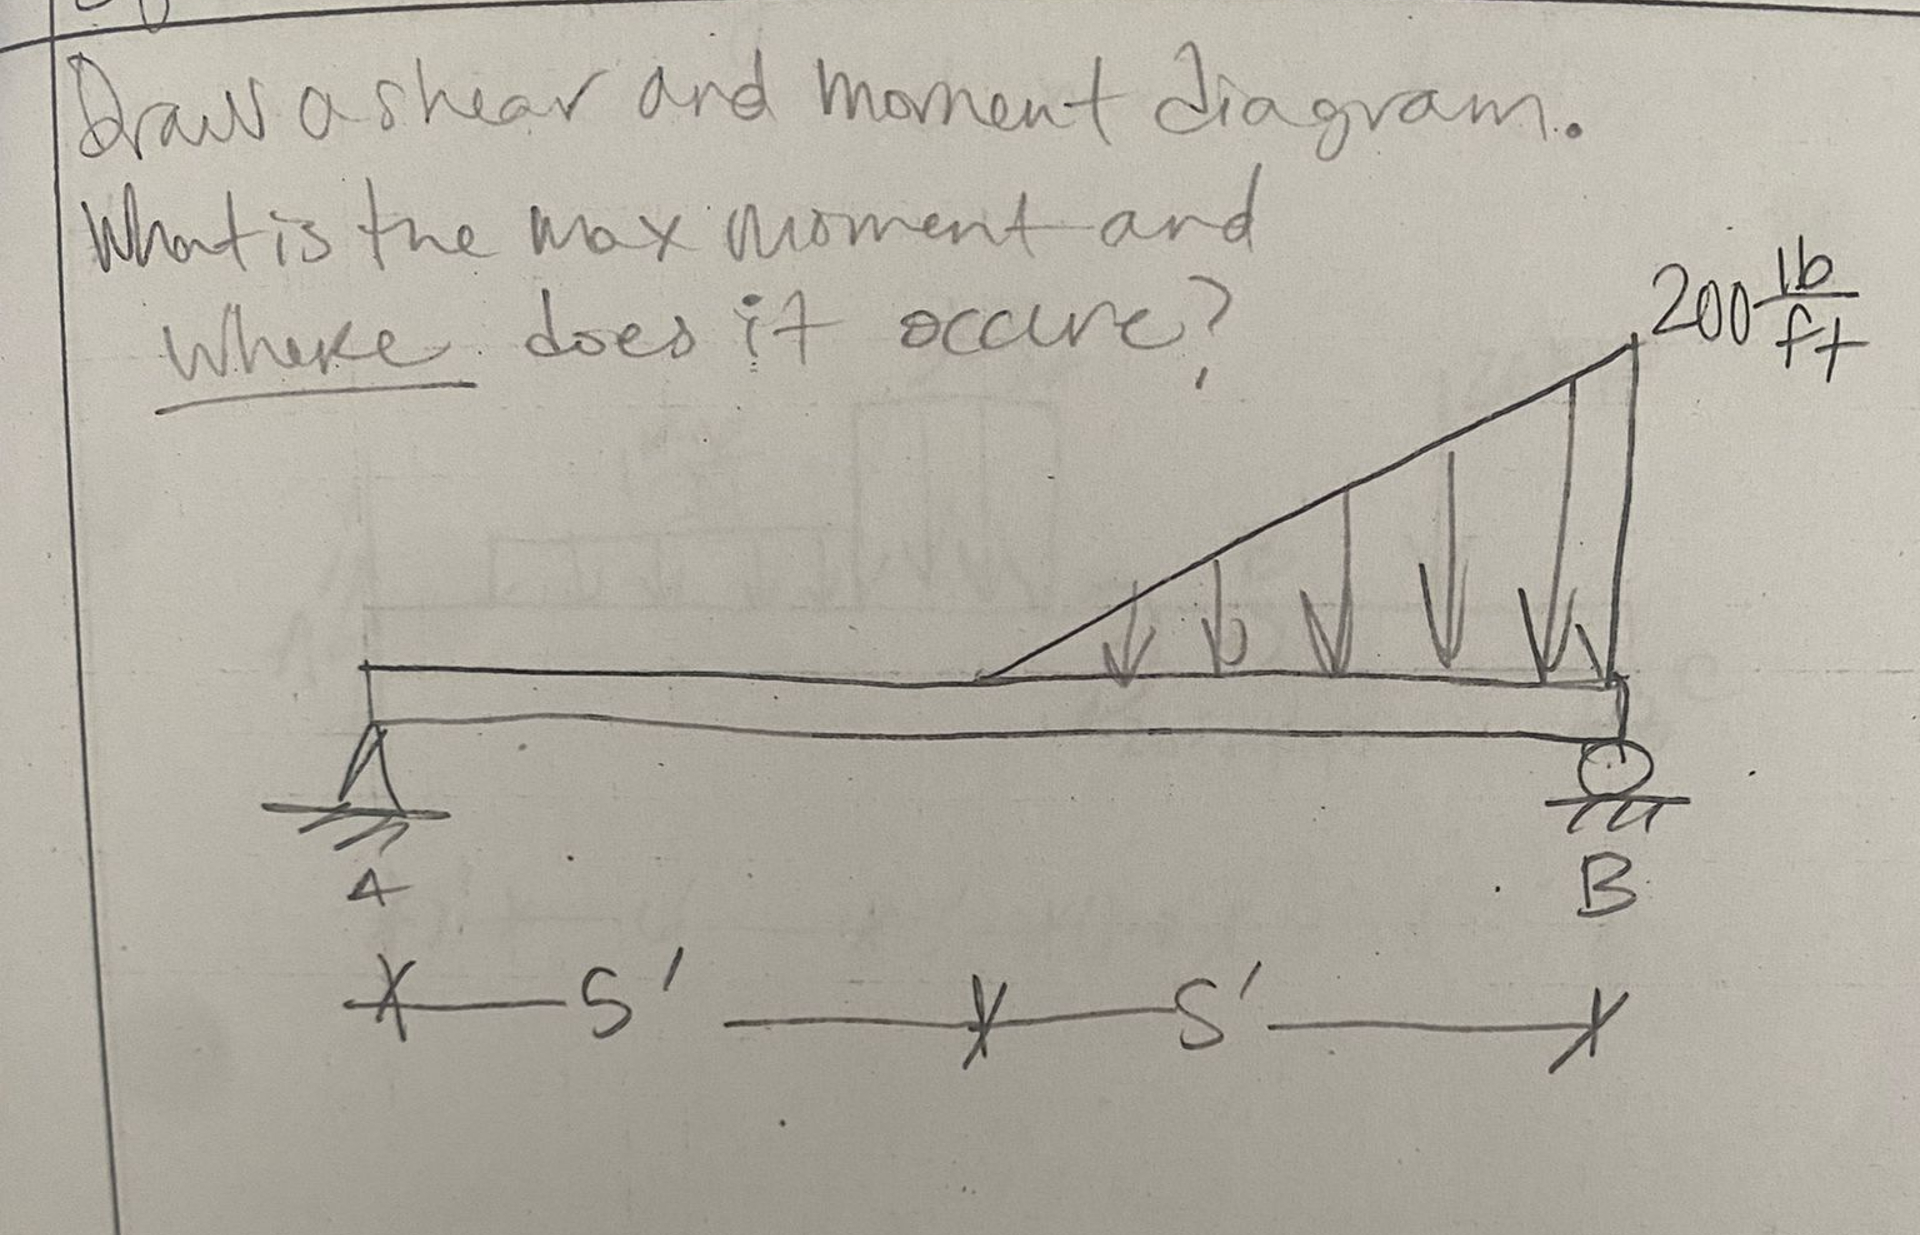 Draw a shear and moment diagram.
What is the max moment and
where does it occure?
200 lb/ft
A
B
5' 5'